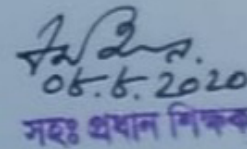 08.8.2020
সহঃ প্রধান শিক্ষক